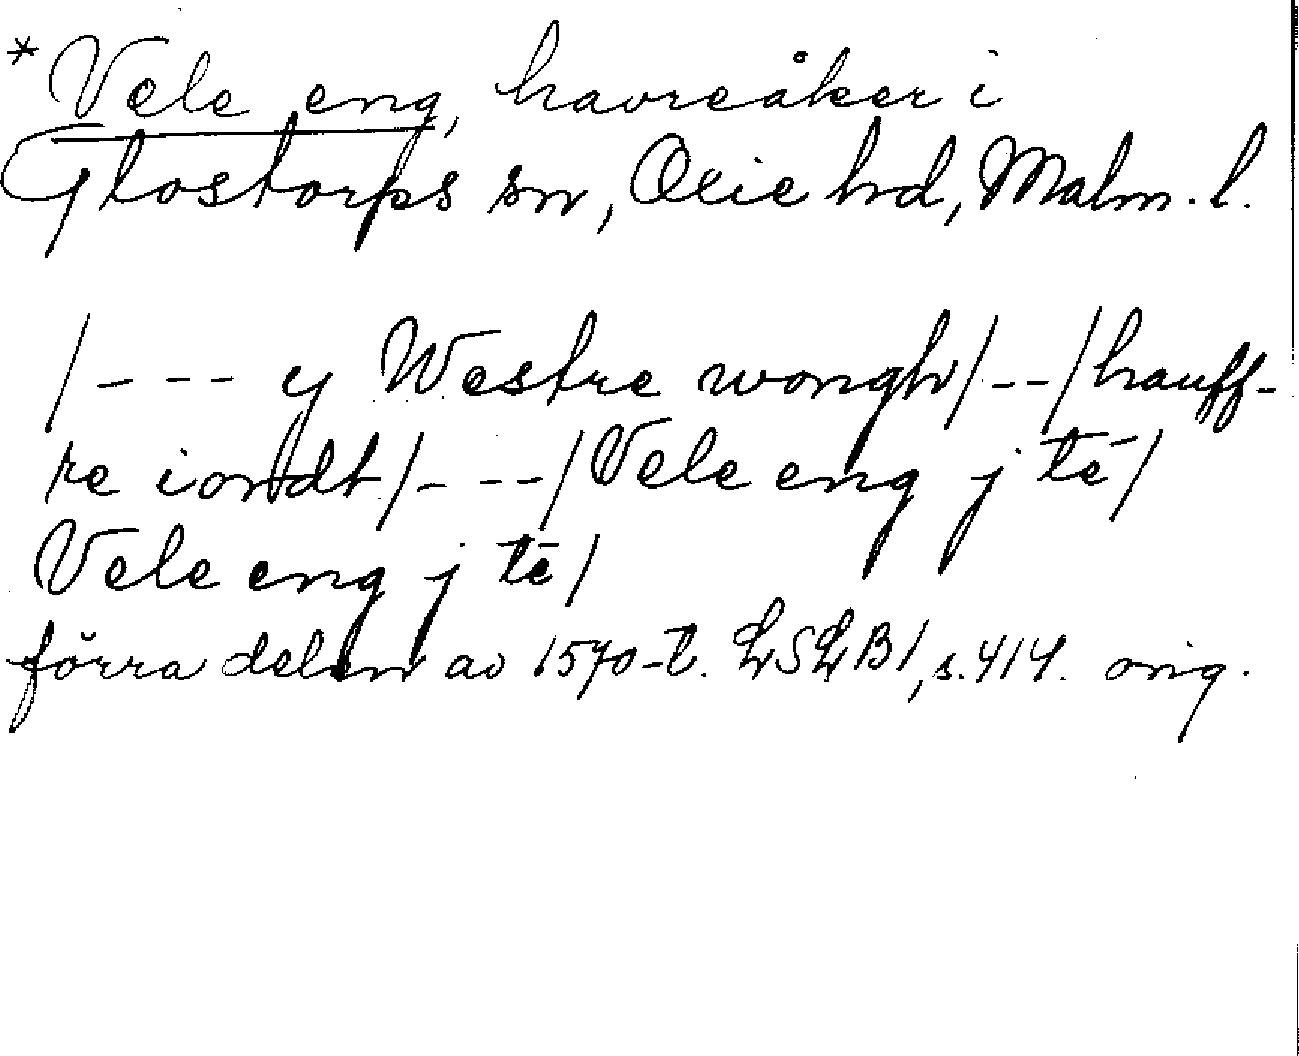 *Vele eng, havreåker i
Glostorps sn, Oxie hd, Malm. l.
/- - - y Westre wongh/- -/hauff-
re iordt/- - -/Vele eng j tē/
Vele eng j tē/
förra delen av 1570-t. LSLB1, s. 414. orig.